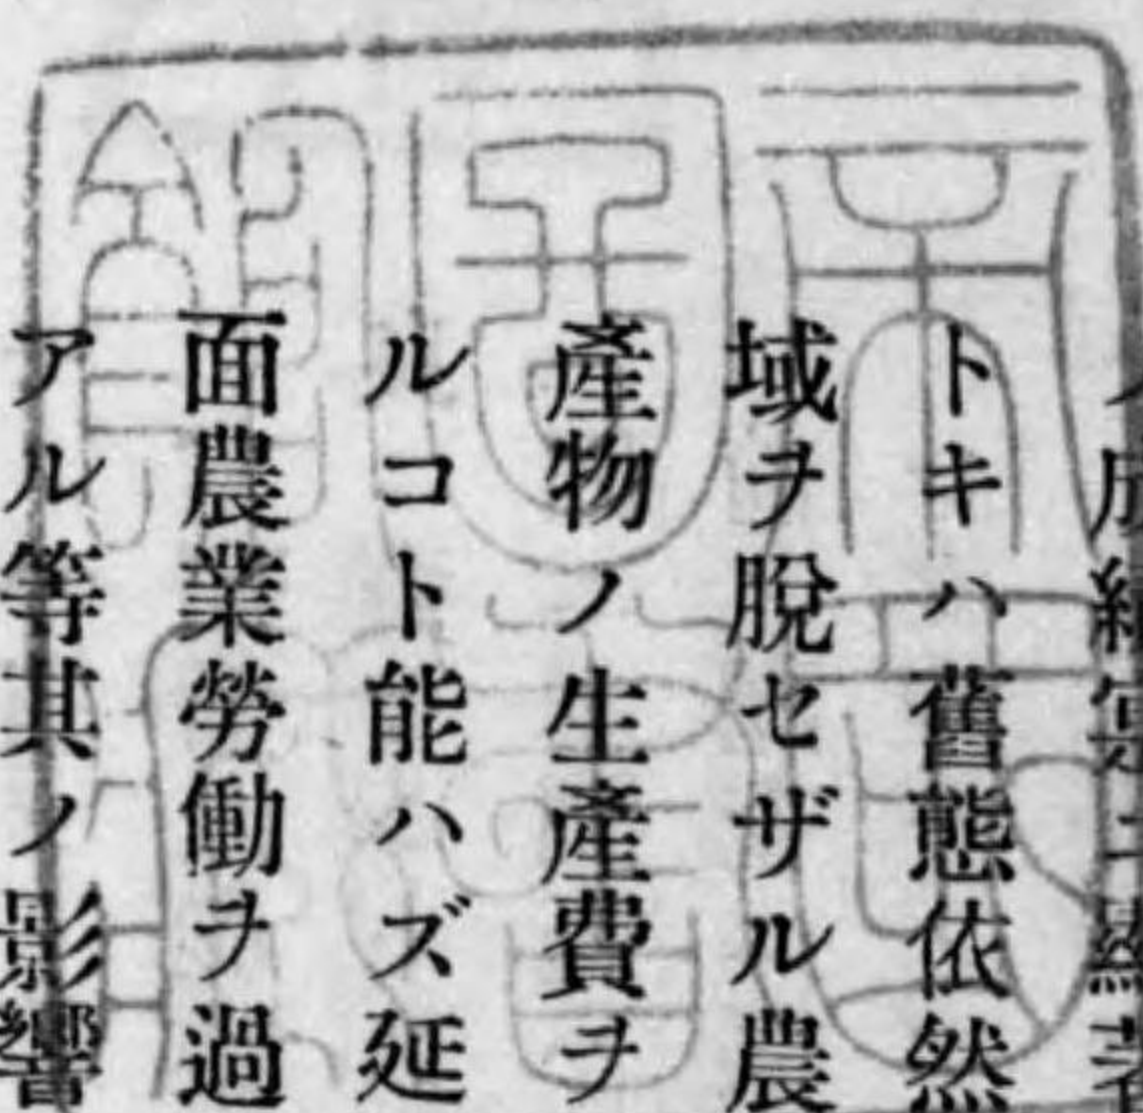 トキハ舊態依然
域ヲ脫セザル農
產物ノ生產費ヲ
ルコト能ハズ延
面農業勞働ヲ過
アル等其ノ影響